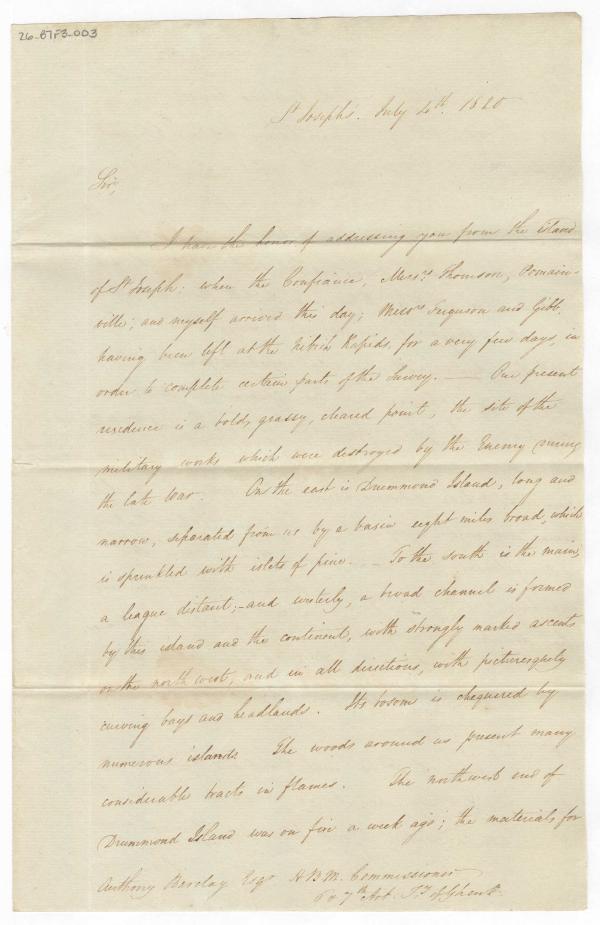 26-B7F3-003
St Joseph's. July 4th. 1820
Sir,
I have the honor of addressing you from the island
of St Joseph: when the Confiance, Messrs. Thomson, Bomain-
ville; and myself arrived this day; Messrs Ferguson and Gibb,
having been left at the Nibish Rapids, for a very few days, in
order to complete certain parts of the Survey. — Our present
residence is a bold, grassy, cleared point, the site of the
military works which were destroyed by the Enemy during
the late War. On the east is Drummond Island, long and
narrow, separated from us by a basin eight miles broad, which
is sprinkled with islets of pine. — To the south is the main,
a league distant; - and westerly, a broad channel is formed
by this island and the continent, with strongly marked ascents
on the north west, and in all directions, with picturesquely
curving bays and headlands. Its bosom is chequered by
numerous islands The woods around us present many
considerable tracts in flames. The northwest end of
Drummond Island was on fire a week ago; the materials for
Anthony Barclay Esqr H.B.M. Commissioner
6 & 7th Art. Ty. of Ghent